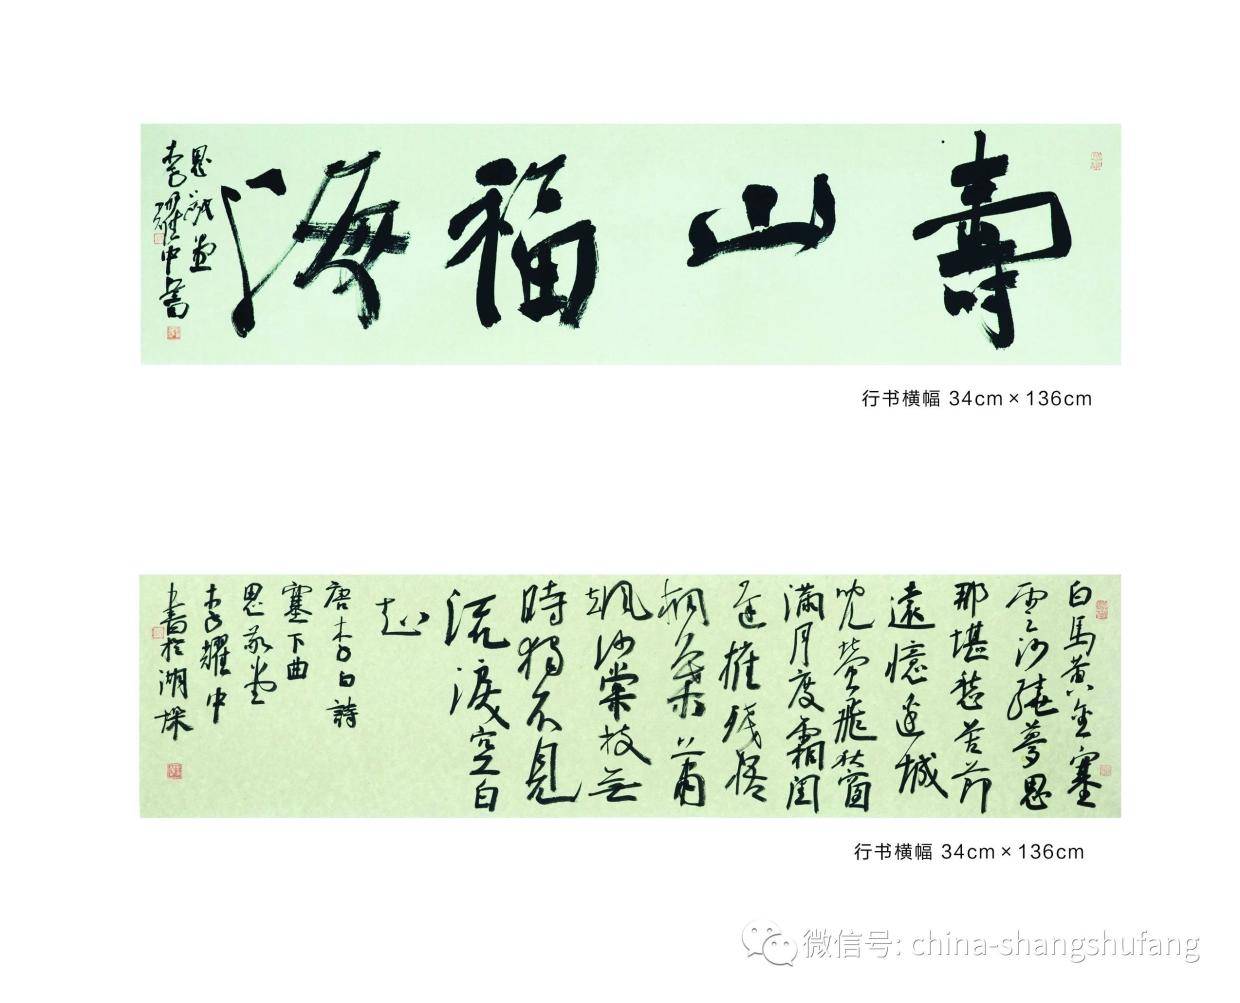 壽山福海
思敬堂
李耀中書
行书横幅 34cm×136cm
白馬黃金塞
雲沙繞夢思
那堪愁苦節
遠憶邊城
兒螢飛秋窗
滿月度霜閨
遲摧殘梧
桐葉蕭
颯沙棠枝無
時獨不見
流淚空自
知
唐李白詩
塞下曲
思敬堂
李耀中
書於湖垛
行书横幅 34cm×136cm
微信号: china-shangshufang